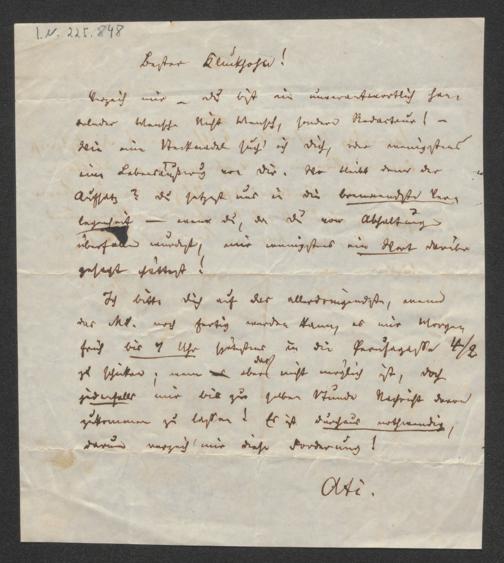 I.N. 225.848
Bester Kluckhohn!
Verzeih mir – du bist ein unverantwortlich han-
delnder Mensch nicht Mensch, sondern Redacteur! –
Wie eine Stecknadel such' ich dich, oder wenigstens
eine Lebensäußerung von dir. Wo bleibt denn der
Aufsatz? du setzest uns in die brennendste Ver-
legenheit – wenn du, da du von Abhaltungen
überfallen wurdest, mir wenigstens ein Wort darüber
gesagt hättest!
Ich bitte dich auf das allerdringendste, wenn
das Mt. noch fertig werden kann, es mir Morgen
früh bis 9 Uhr spätestens in die 4/2
zu schicken; wenn das aber nicht möglich ist, doch
jedenfalls mir bis zur selben Stunde Nachricht davon
zukommen zu lassen! Es ist durchaus nothwendig,
darum verzeih mir diese Forderung!